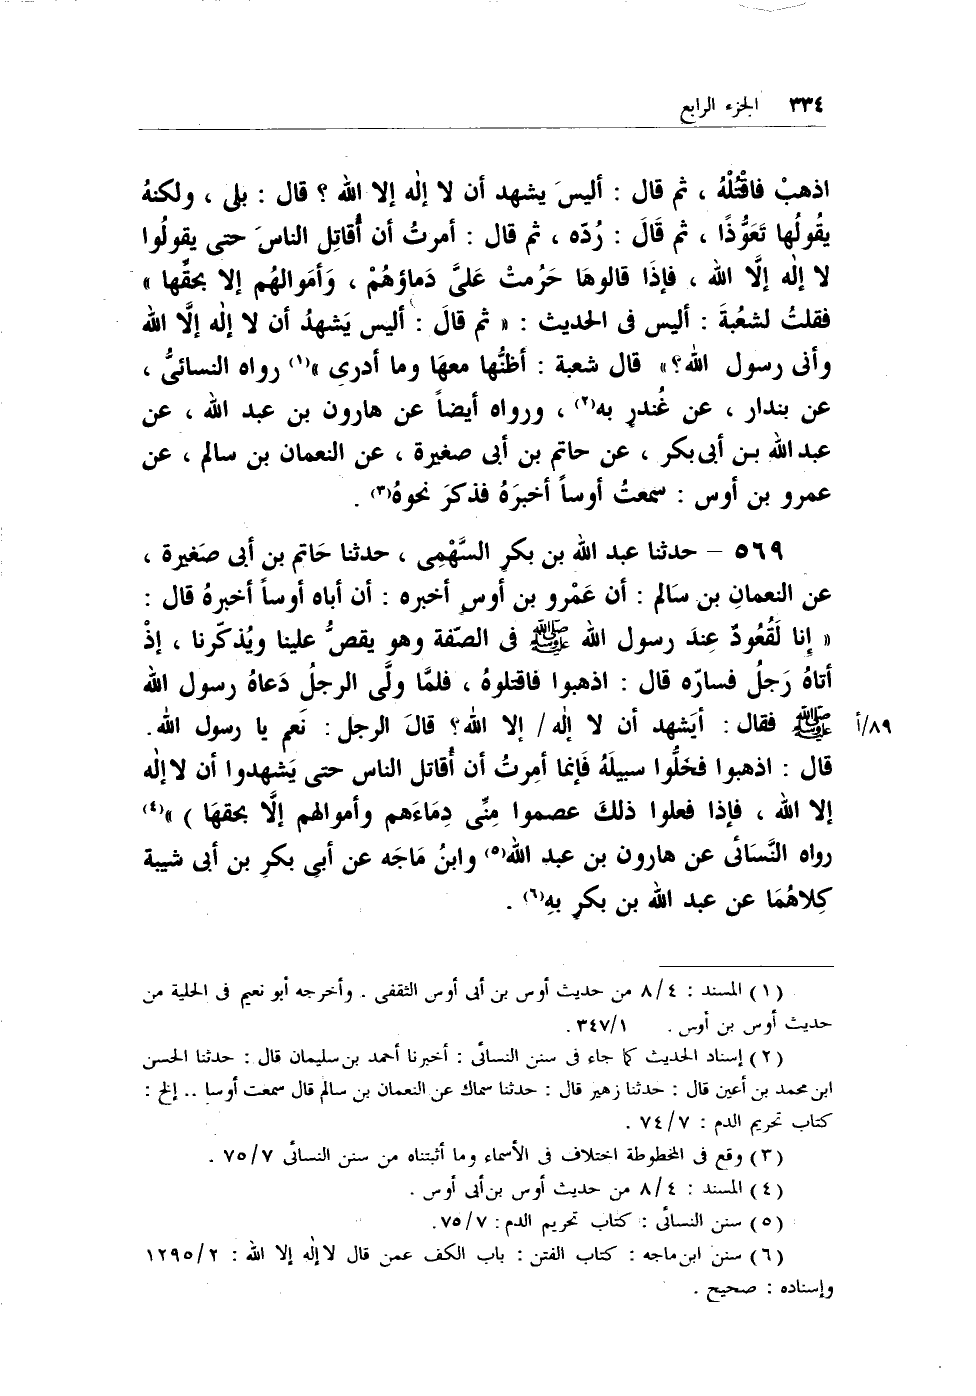 ٣٣٤ الجزء الرابع
اذهبْ فاقْتُلْهُ ، ثم قال : أليسَ يشهد أن لا إلٰه إلا الله ؟ قال : بلى ، ولكنهُ
يقُولُها تَعَوُّذًا ، ثم قَالَ : رُدّه ، ثم قال : أمرتُ أن أُقاتِل الناسَ حتى يقولُوا
لا إلٰه إلَّا الله ، فإذَا قالوهَا حَرُمتْ عَلىَّ دَماؤهُمْ ، وَأموالهُم إلا بحقِّها »
فقلتُ لشعُبةَ : أليس فى الحديث : « ثم قالَ : أليس يَشهدُ أن لا إلٰه إلَّا الله
وأنى رسول الله؟» قال شعبة : أظنُّها معهَا وما أدرى »(١) رواه النسائىُّ ،
عن بندار ، عن غُندرِ به(٢) ، ورواه أيضاً عن هارون بن عبد الله ، عن
عبد الله بـن أبى بكر ، عن حاتم بن أبى صغيرة ، عن النعمان بن سالم ، عن
عمرو بن أوس : سمعتُ أوساً أخبرَهُ فذكرَ نحوهُ(٣) .
٥٦٩ – حدثنا عبد الله بن بكرِ السَّهْمِى ، حدثنا حَاتم بن أبى صَغيرة ،
عن النعمانِ بن سَالم : أن عَمْرو بن أوسٍ أخبره : أن أباه أوساً أخبرهُ قال :
« إِنا لَقُعُودٌ عِندَ رسول الله ﷺ فى الصّفة وهو يقصُّ علينا ويُذكّرنا ، إذْ
أتاهُ رَجلُ فسارّه قال : اذهبوا فاقتلوهُ ، فلمَّا ولَّى الرجلُ دَعاهُ رسول الله
ﷺ فقال : أيَشهد أن لا إلٰه/ إلا الله؟ قالَ الرجل : نَعم يا رسول الله. ٨٩/أ
قال : اذهبوا فخَلُّوا سبيلَهُ فَإنما أمِرتُ أن أُقاتل الناس حتى يَشهدوا أن لا إلٰه
إلا الله ، فإذا فعلوا ذلكَ عصموا مِنِّى دِمَاءَهم وأموالهم إلَّا بحقهَا ) »(٤)
رواه النَّسَائى عن هارون بن عبد الله(٥) وابنُ مَاجَه عن أبي بكرِ بن أبى شيبة
كِلاهُمَا عن عبد الله بن بكرِ بهِ(٦) .
(١) المسند : ٨/٤ من حديث أوس بن أبى أوس الثقفى . وأخرجه أبو نعيم فى الحلية من
حديث أوس بن أوس . ٣٤٧/١ .
(٢) إسناد الحديث كما جاء فى سنن النسائى : أخبرنا أحمد بن سليمان قال : حدثنا الحسن
ابن محمد بن أعين قال : حدثنا زهير قال : حدثنا سماك عن النعمان بن سالم قال سمعت أوسا .. إلخ :
كتاب تحريم الدم : ٧٤/٧ .
(٣) وقع فى المخطوطة اختلاف فى الأسماء وما أثبتناه من سنن النسائى ٧٥/٧ .
(٤) المسند : ٨/٤ من حديث أوس بن أبى أوس .
(٥) سنن النسائى : كتاب تحريم الدم : ٧٥/٧.
(٦) سنن ابن ماجه : كتاب الفتن : باب الكف عمن قال لا إلٰه إلا الله : ١٢٩٥/٢
وإسناده : صحيح .